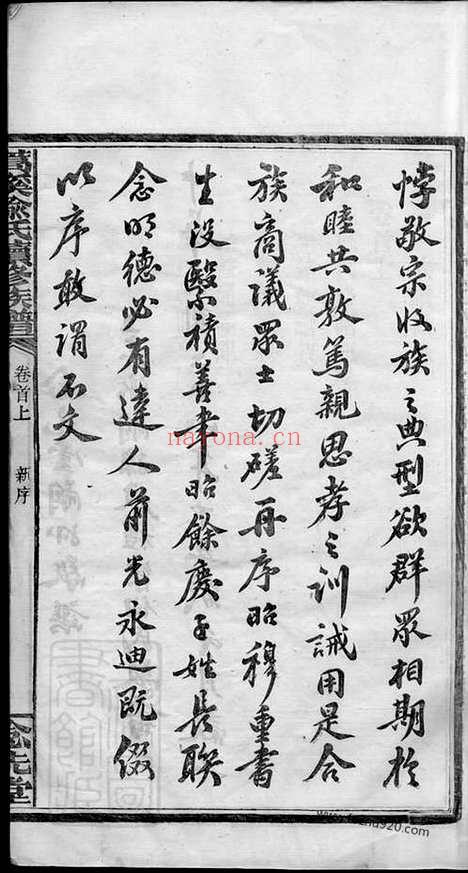 悖敬宗收族之典型欲群眾相期於
和睦共敦篤親思孝之訓誡用是合
族商議眾士切磋再序昭穆重書
生沒繄積善聿昭餘慶子姓長聯
念明德必有達人前光永迪既綴
以序敢謂不文
俞氏續修族譜
卷首上
新序
nayona.cn